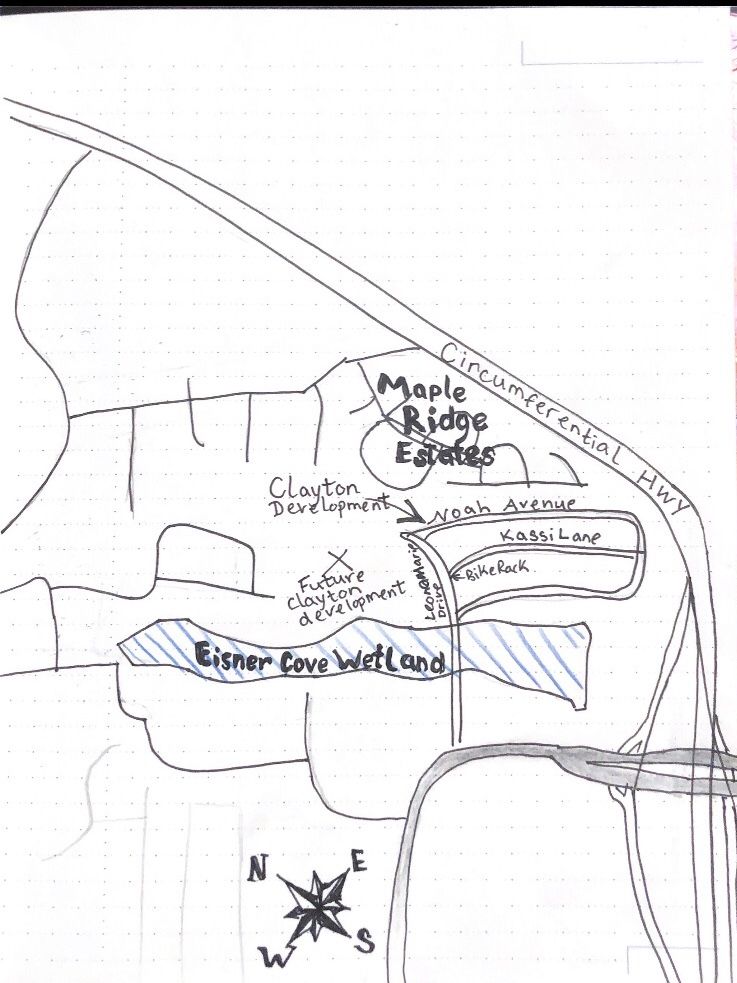 Circumferential HWY
Maple
Ridge
Estates
Clayton
Development
Noah Avenue
Kassi Lane
Leona Marie
Drive
BikeRack
Future
clayton
development
Eisner Cove Wetland
N
E
W
S